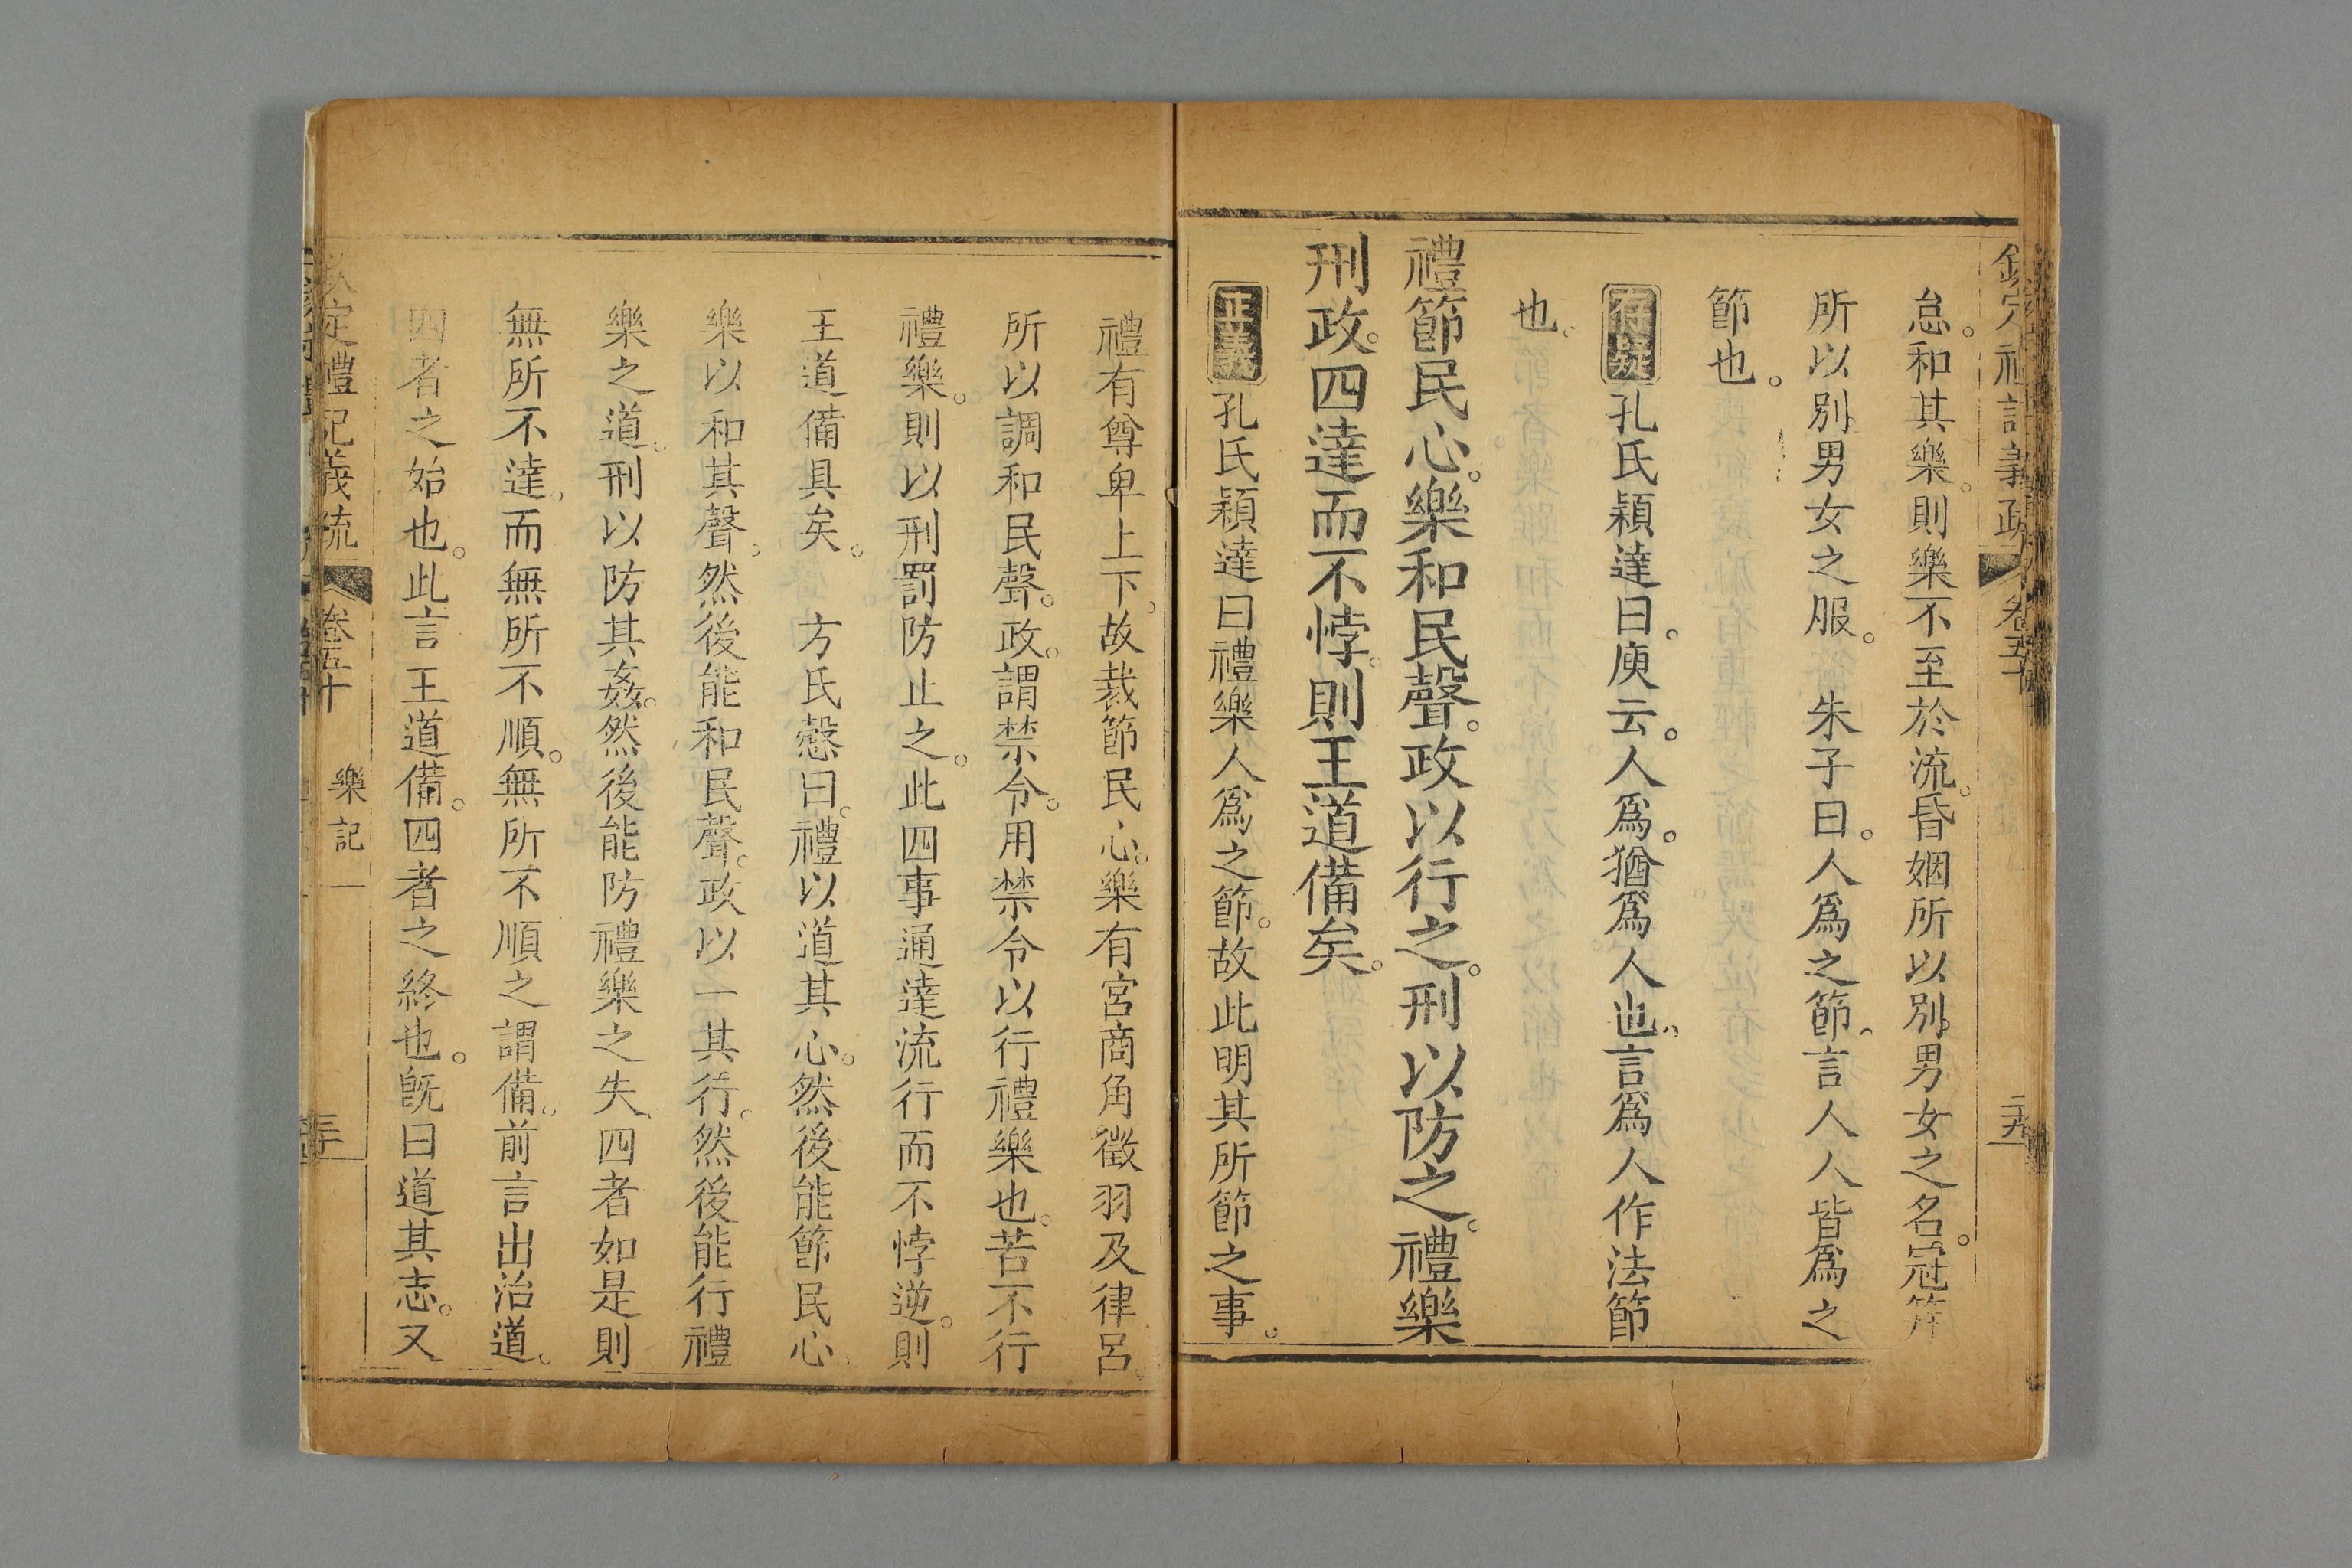 怠。和其樂。則樂不至於流。昏姻所以別男女之名。冠笄
所以別男女之服。 朱子曰。人爲之節。言人人皆爲之
節也。
存疑 孔氏穎達曰。庾云。人爲。猶爲人也。言爲人作法節
也。
禮節民心。樂和民聲。政以行之。刑以防之。禮樂
刑政。四達而不悖。則王道備矣。
正義 孔氏穎達曰禮樂人爲之節。故此明其所節之事。
禮有尊卑上下。故裁節民心。樂有宮商角徵羽及律呂。
所以調和民聲。政。謂禁令。用禁令以行禮樂也。若不行
禮樂。則以刑罰防止之。此四事通達流行而不悖逆。則
王道備具矣。 方氏慤曰。禮以道其心。然後能節民心。
樂以和其聲。然後能和民聲。政以一其行。然後能行禮
樂之道。刑以防其姦。然後能防禮樂之失。四者如是則
無所不達。而無所不順。無所不順之謂備。前言出治道。
四者之始也。此言王道備。四者之終也。旣曰道其志。又
定禮記義疏 卷五十 樂記一